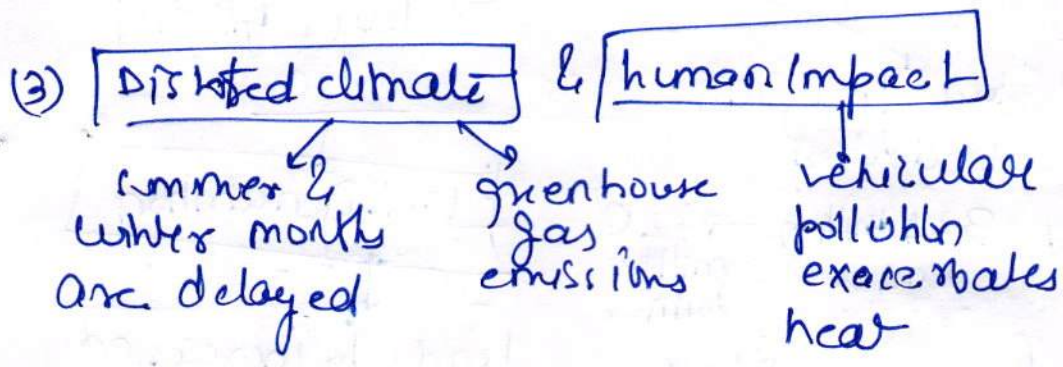 (3) Distorted climate & human impact
summer &
winter months
are delayed
greenhouse
gas
emissions
vehicular
pollution
exacerbates
heat